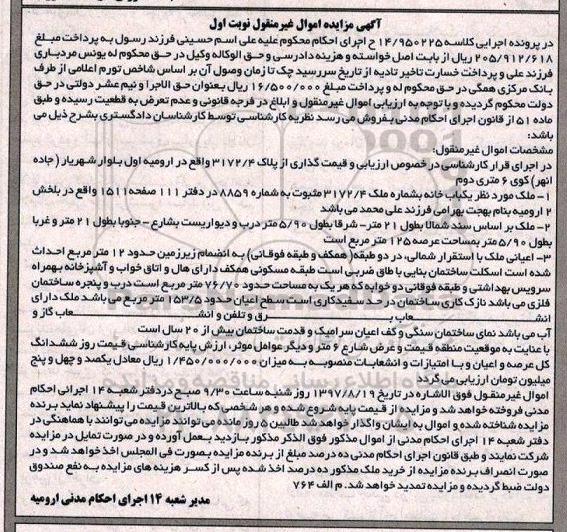 آگهی مزایده اموال غیرمنقول نوبت اول
در پرونده اجرایی کلاسه ۱۴/۹۵۰۲۲۵ ح اجرای احکام محکوم علیه علی اسم حسینی فرزند رسول به پرداخت مبلغ
۲۰۵/۹۱۲/۶۱۸ ریال از بابت اصل خواسته و هزینه دادرسی و حق الوکاله وکیل در حق محکوم له یونس مردباری
فرزند علی و پرداخت خسارت تاخیر تادیه از تاریخ سررسید چک تا زمان وصول آن بر اساس شاخص تورم اعلامی از طرف
بانک مرکزی همگی در حق محکوم له و پرداخت مبلغ ۱۶/۵۰۰/۰۰۰ ریال بعنوان حق الاجرا و نیم عشر دولتی در حق
دولت محکوم گردیده و با توجه به ارزیابی اموال غیرمنقول و ابلاغ در فرجه قانونی و عدم تعرض به قطعیت رسیده و طبق
ماده ۵۱ از قانون اجرای احکام مدنی بفروش می رسد نظریه کارشناسی توسط کارشناسان دادگستری بشرح ذیل می
باشد:
مشخصات اموال غیرمنقول:
در اجرای قرار کارشناسی در خصوص ارزیابی و قیمت گذاری از پلاک ۳۱۷۲/۴ واقع در ارومیه اول بلوار شهریار (جاده
انهر) کوی ۶ متری دوم
۱- ملک مورد نظر یکباب خانه بشماره ملک ۳۱۷۲/۴ مثبوت به شماره ۸۸۵۹ در دفتر ۱۱۱ صفحه ۱۵۱۱ واقع در بخش
۲ ارومیه بنام بهجت بهرامی فرزند علی محمد می باشد
۲- ملک بر اساس سند شمالا بطول ۲۱ متر - شرقا بطول ۵/۹۰ متر درب و دیواریست بشارع - جنوبا بطول ۲۱ متر و غربا
بطول ۵/۹۰ متر بمساحت عرصه ۱۲۵ متر مربع است
۳- اعیانی ملک با استقرار شمالی، در دو طبقه (همکف و طبقه فوقانی) به انضمام زیرزمین حدود ۱۲ متر مربع احداث
شده است اسکلت ساختمان بنایی با طاق ضربی است طبقه مسکونی همکف دارای هال و اتاق خواب و آشپزخانه بهمراه
سرویس بهداشتی و طبقه فوقانی دو خوابه که هر یک به مساحت حدود ۷۶/۷۰ متر مربع است درب و پنجره ساختمان
فلزی می باشد نازک کاری ساختمان در حد سفیدکاری است سطح اعیان حدود ۱۵۳/۵ متر مربع می باشد ملک دارای
انشعاب برق و تلفن و انشعاب گاز و
آب می باشد نمای ساختمان سنگی و کف اعیان سرامیک و قدمت ساختمان بیش از ۲۰ سال است
با عنایت به موقعیت منطقه قیمت و عرض شارع ۶ متر و دیگر عوامل موثر، ارزش پایه کارشناسی قیمت روز ششدانگ
کل عرصه و اعیان و با امتیازات و انشعابات منصوبه به میزان ۱/۴۵۰/۰۰۰/۰۰۰ ریال معادل یکصد و چهل و پنج
میلیون تومان ارزیابی می گردد
اموال غیرمنقول فوق الاشاره در تاریخ ۱۳۹۷/۸/۱۹ روز شنبه ساعت ۹/۳۰ صبح در دفتر شعبه ۱۴ اجرائی احکام
مدنی فروخته خواهد شد و مزایده از قیمت پایه شروع شده و هر شخصی که بالاترین قیمت را پیشنهاد نماید برنده
مزایده شناخته شده و اموال به ایشان واگذار خواهد شد طالبین ۵ روز مانده می توانند مزایده می توانند با هماهنگی در
دفتر شعبه ۱۴ اجرای احکام مدنی از اموال مذکور فوق الذکر مذکور بازدید بعمل آورده و در صورت تمایل در مزایده
شرکت نمایند و طبق قانون اجرای احکام مدنی ده درصد مبلغ از برنده مزایده بصورت فی المجلس اخذ خواهد شد و در
صورت انصراف برنده مزایده از خرید ملک مذکور ده درصد اخذ شده پس از کسر هزینه های مزایده به نفع صندوق
دولت ضبط گردیده و مزایده تمدید خواهد شد. م الف ۷۶۴
مدیر شعبه ۱۴ اجرای احکام مدنی ارومیه